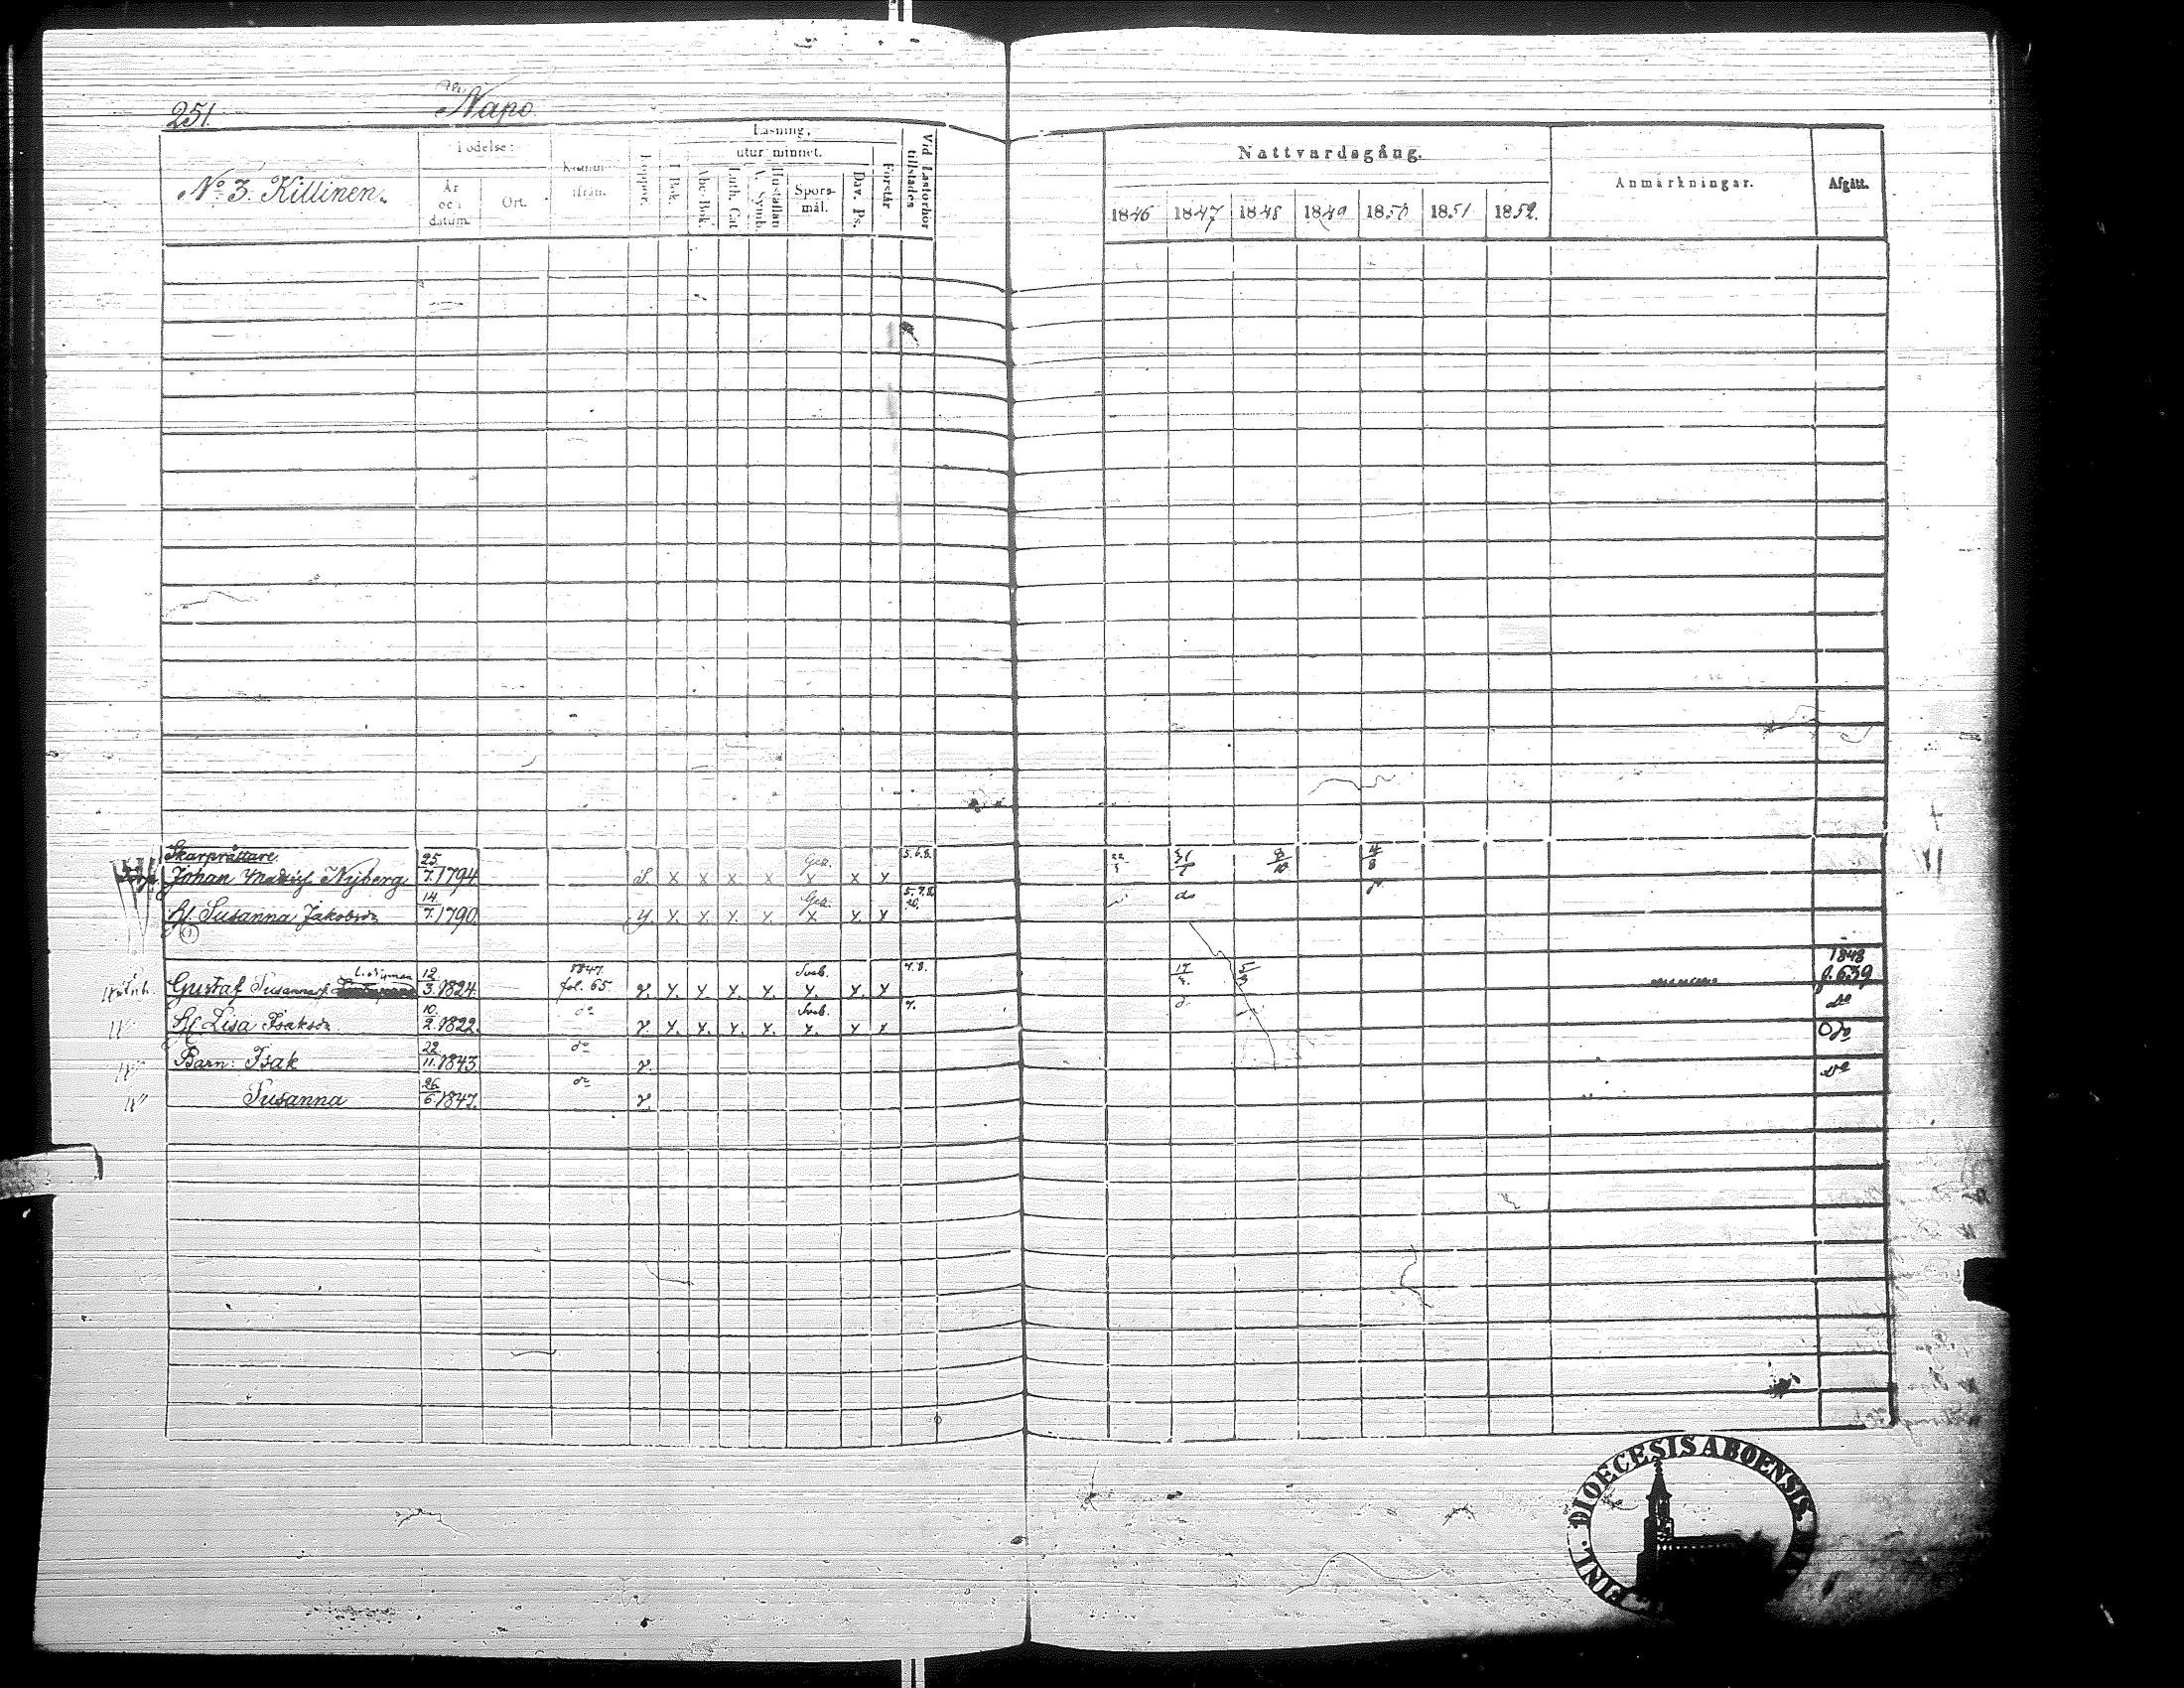 251. Napo.
No 3. Killinen.
Födelse:
År och datum.
Ort.
Kommit ifrån.
Koppor.
I Bok.
Läsning,
utur minnet.
Abc-Bok.
Luth. Cat
Hustaflan A. Symb.
Spörs-mål.
Dav. Ps.
Förstår
Vid Läsförhör tillstädes
Nattvardsgång.
1846 1847 1848 1849 1850 1851 1852.
Anmärkningar.
Afgått.
Skarprättare. 25. 5.6.8. 8/10 4/8
Johan Nyberg 7. 1794. x x x x x x x
14. 5.7.8. 10. do
H. Susanna Jakobsdr 7. 1790. x x x x x x x
1848
12. 1847. Svab. 7.8. 17 5/3 f. 639
Gustaf Susannas. 3. 1824. fol. 65. v. x. x. x. x. x. x. x
10. do Svab. 7. do
H. Lisa Isaksdr. 2. 1822. v. x. x. x. x. x. x x
22. do do
Barn: Isak 11. 1843. v.
26. do do
Susanna 6. 1847. v.
DIOECESIS ABOENSIS FINL.